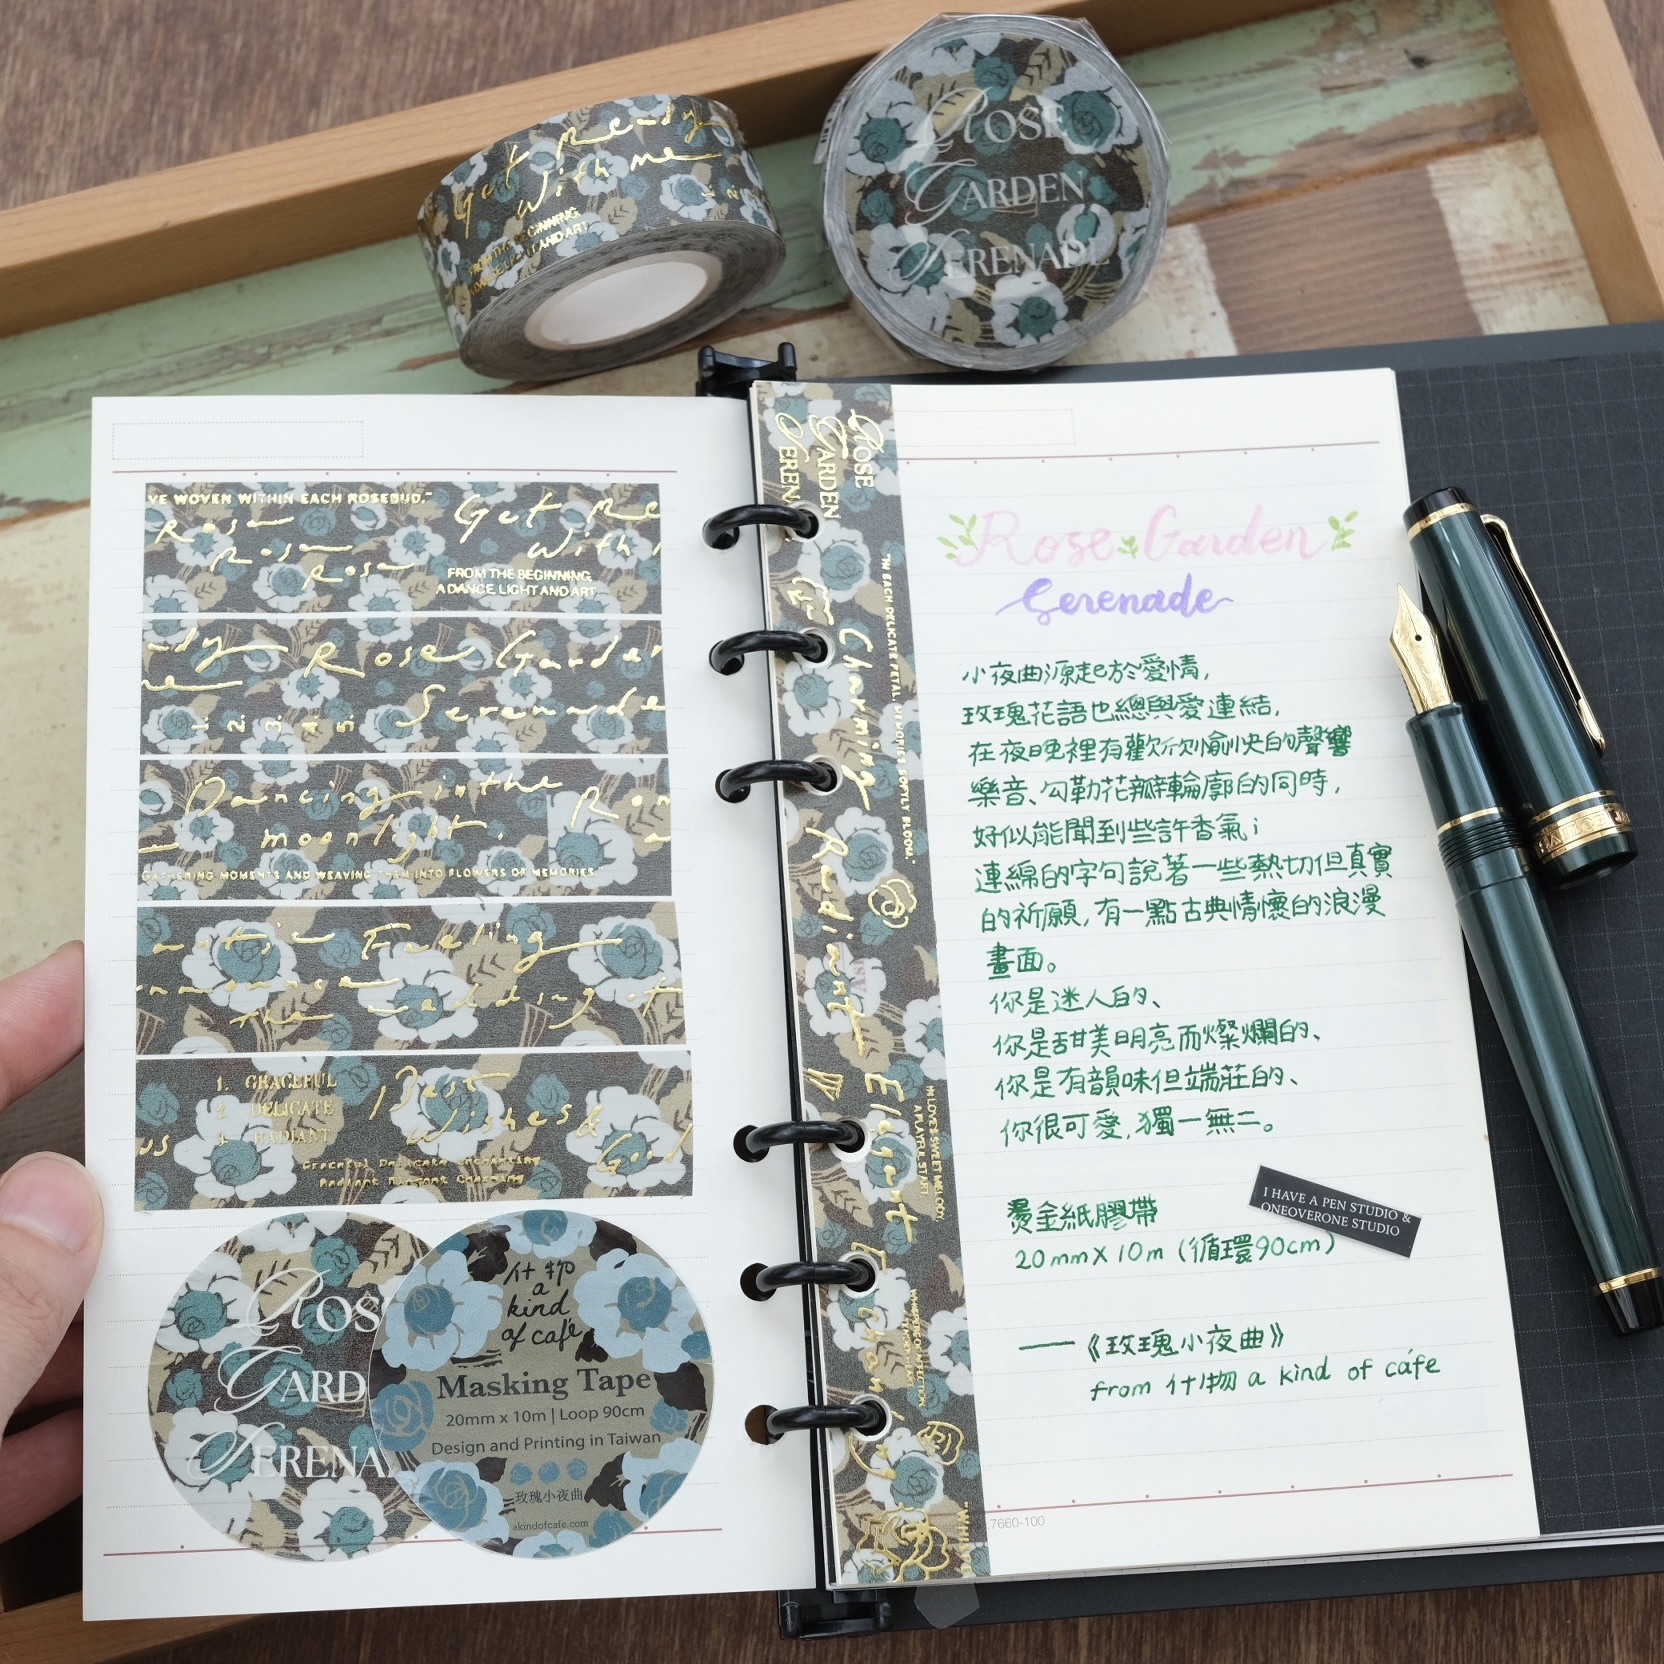 Get Ready
With me
FROM THE BEGINNING,
A DANCE, LIGHT AND ART
ROSE
GARDEN
SERENADE
VE WOVEN WITHIN EACH ROSEBUD."
Rose
Rose
Rose
Get Re
With
FROM THE BEGINNING,
A DANCE, LIGHT AND ART
dy Rose Garden
1. 2. 3. 4. 5. Serenade
Dancing in the Rom
moonlight.
GATHERING MOMENTS AND WEAVING THEM INTO FLOWERS OF MEMORIES.
antic Feeling
1. GRACEFUL
2. DELICATE
3. RADIANT
Best
Wishes
Graceful Delicate Enchanting
Radiant Elegant Charming
ROS
GARD
SERENA
什物
a
kind
of café
Masking Tape
20mm x 10m | Loop 90cm
Design and Printing in Taiwan
玫瑰小夜曲
akindofcafe.com
ROSE
GARDEN
SEREN
"IN EACH DELICATE PETAL, MEMORIES SOFTLY BLOOM."
Charming
Radiant
Elegant
IN LOVE'S SWEET MELODY,
A PLAYFUL START
Rose Garden
Serenade
小夜曲源起於愛情,
玫瑰花語也總與愛連結,
在夜晚裡有歡欣愉快的聲響
樂音、勾勒花瓣輪廓的同時,
好似能聞到些許香氣;
連綿的字句說著一些熱切但真實
的祈願,有一點古典情懷的浪漫
畫面。
你是迷人的、
你是甜美明亮而燦爛的、
你是有韻味但端莊的、
你很可愛,獨一無二。
燙金紙膠帶
20mm X 10m (循環90cm)
I HAVE A PEN STUDIO &
ONEOVERONE STUDIO
——《玫瑰小夜曲》
from 什物 a kind of cáfe
7660-100